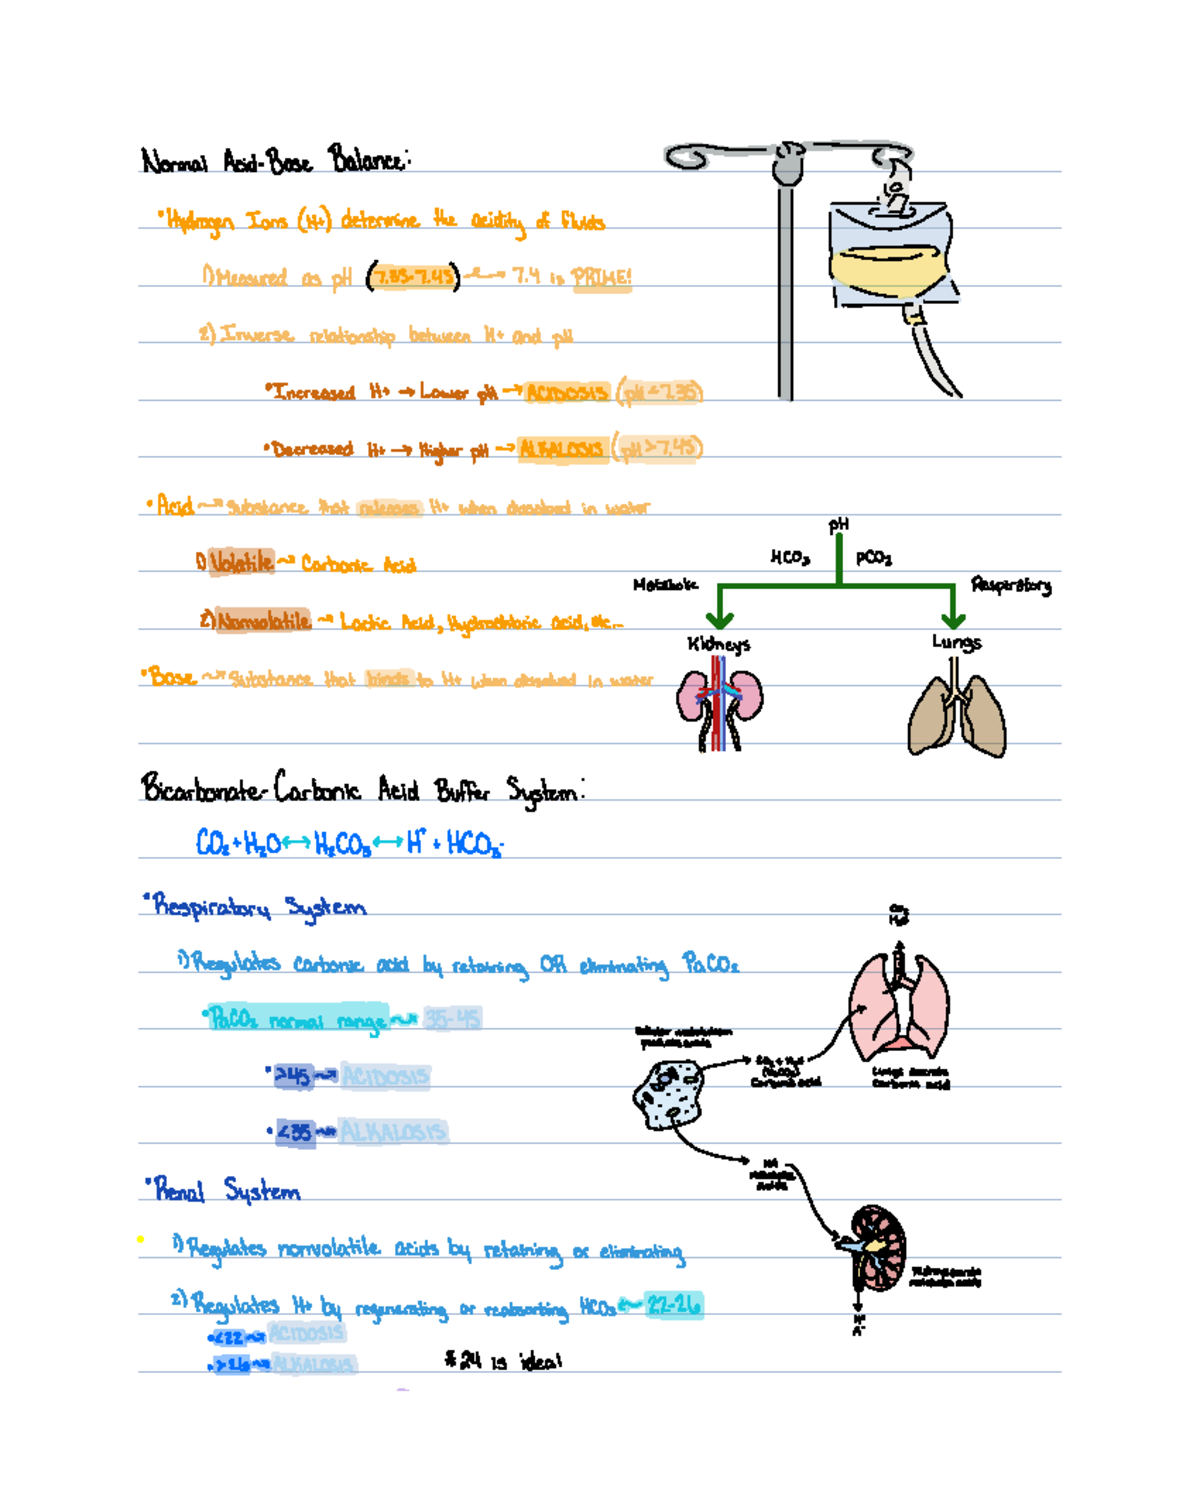 Normal Acid-Base Balance:
•Hydrogen Ions (H+) determine the acidity of fluids
1) Measured as pH (7.35-7.45) ← 7.4 is PRIME!
2) Inverse relationship between H+ and pH
•Increased H+ → Lower pH → ACIDOSIS (pH < 7.35)
•Decreased H+ → Higher pH → ALKALOSIS (pH > 7.45)
•Acid → Substance that releases H+ when dissolved in water
1) Volatile → Carbonic Acid
2) Nonvolatile → Lactic Acid, Hydrochloric acid, etc...
•Base → Substance that binds to H+ when dissolved in water
pH
HCO₃ pCO₂
Metabolic Respiratory
Kidneys Lungs
Bicarbonate-Carbonic Acid Buffer System:
CO₂ + H₂O ↔ H₂CO₃ ↔ H⁺ + HCO₃-
•Respiratory System
1) Regulates carbonic acid by retaining OR eliminating PaCO₂
•PaCO₂ normal range → 35-45
•>45 → ACIDOSIS
•<35 → ALKALOSIS
CO₂
H₂O
Cellular metabolism
produces acids
CO₂ + H₂O
(H₂CO₃)
Carbonic acid
Lungs excrete
carbonic acid
HA
Metabolic
acids
metabolic acids
•Renal System
1) Regulates nonvolatile acids by retaining or eliminating
2) Regulates H+ by regenerating or reabsorbing HCO₃ ← 22-26
•<22 → ACIDOSIS
•>26 → ALKALOSIS
* 24 is ideal